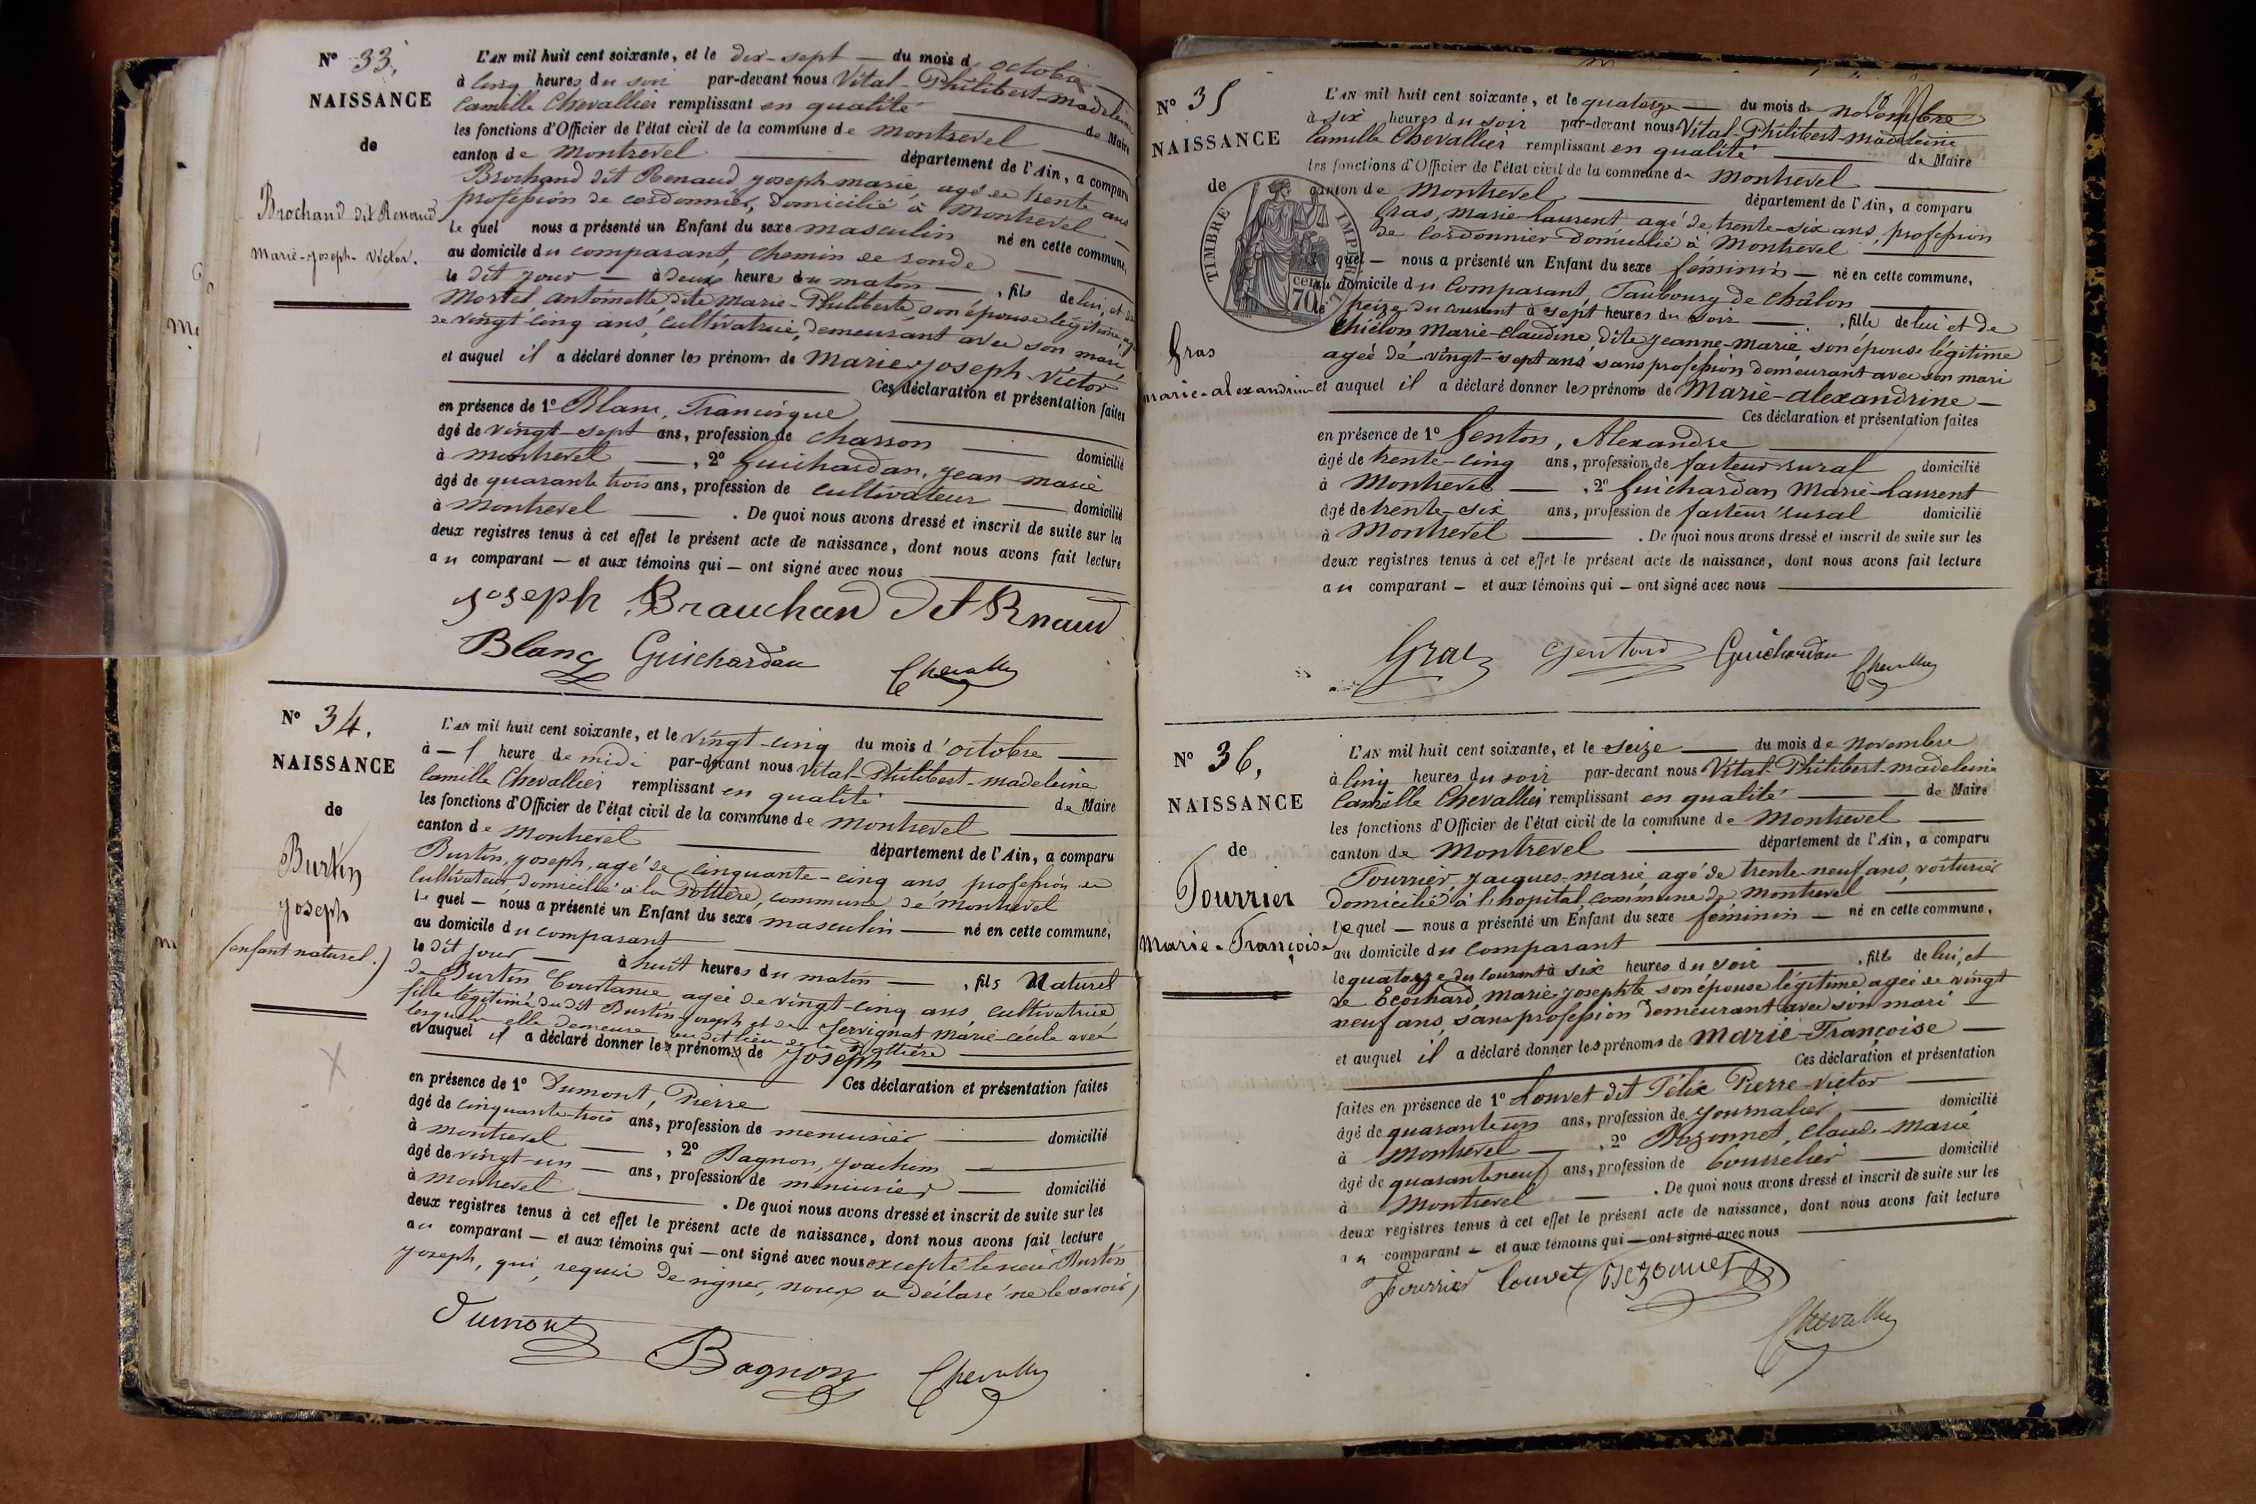 N° 33.
NAISSANCE
de
Brochand dit Renaud
Marie-Joseph-Victor.
L'AN mil huit cent soixante, et le dix-sept — du mois d'octobre
à cinq heures du soir par-devant nous Vital-Philibert-Madeleine
Camille Chevallier remplissant en qualité de Maire
les fonctions d'Officier de l'état civil de la commune de Montrevel
canton de Montrevel département de l'Ain, a comparu
Brochand dit Renaud Joseph-marie, agé de trente ans
profession de cordonnier, domicilié à Montrevel
le quel nous a présenté un Enfant du sexe masculin né en cette commune,
au domicile du comparant, chemin de ronde
le dit jour — à deux heures du matin — , fils de lui, et de
Mortel antoinette dite Marie-Philiberte, son épouse légitime, agée
de vingt cinq ans, cultivatrice, demeurant avec son mari
et auquel il a déclaré donner les prénoms de Marie-Joseph-Victor
Ces déclaration et présentation faites
en présence de 1° Blanc, Francisque
âgé de vingt-sept ans, profession de charron domicilié
à Montrevel — , 2° Guichardan, Jean-marie
âgé de quarante trois ans, profession de cultivateur domicilié
à Montrevel . De quoi nous avons dressé et inscrit de suite sur les
deux registres tenus à cet effet le présent acte de naissance, dont nous avons fait lecture
au comparant — et aux témoins qui — ont signé avec nous
Joseph Brauchand dit Rnaud
Blanc Guichardan Chevallier
N° 34.
NAISSANCE
de
Burtin
Joseph
(enfant naturel.)
L'AN mil huit cent soixante, et le vingt-cinq du mois d'octobre
à — 1 heure de midi par-devant nous Vital-Philibert-madeleine
Camille Chevallier remplissant en qualité de Maire
les fonctions d'Officier de l'état civil de la commune de Montrevel
canton de Montrevel département de l'Ain, a comparu
Burtin, Joseph, agé de cinquante-cinq ans, profession de
cultivateur domicilié à la Pottière, commune de Montrevel
le quel — nous a présenté un Enfant du sexe masculin — né en cette commune,
au domicile du comparant
le dit jour — à huit heures du matin — , fils Naturel
de Burtin Constance, agée de vingt-cinq ans, cultivatrice
fille légitime dudit Burtin Joseph et de Servignat Marie-cécile avec
lesquels elle demeure au dit lieu de la Pottière
et auquel il a déclaré donner les prénoms de Joseph
Ces déclaration et présentation faites
en présence de 1° Dumont, Pierre
âgé de cinquante-trois ans, profession de menuisier domicilié
à Montrevel — , 2° Bagnon, Joachim
âgé de vingt-un — ans, profession de menuisier — domicilié
à Montrevel . De quoi nous avons dressé et inscrit de suite sur les
deux registres tenus à cet effet le présent acte de naissance, dont nous avons fait lecture
au comparant — et aux témoins qui — ont signé avec nous excepté le sieur Burtin
Joseph, qui, requis de signer, nous a déclaré ne le savoir,
Dumont
Bagnon Chevallier
N° 35
NAISSANCE
de
TIMBRE IMPÉRIAL
70
Gras
Marie-alexandrine
L'AN mil huit cent soixante, et le quatorze — du mois de novembre
à six heures du soir par-devant nous Vital-Philibert-madeleine
Camille Chevallier remplissant en qualité de Maire
les fonctions d'Officier de l'état civil de la commune de Montrevel
canton de Montrevel département de l'Ain, a comparu
Gras, Marie-Laurent, agé de trente-six ans, profession
de Cordonnier domicilié à Montrevel
quel — nous a présenté un Enfant du sexe féminin — né en cette commune,
au domicile du Comparant, Faubourg de Châlon
le treize du courant à sept heures du soir — , fille de lui et de
Chiclon Marie-Claudine dite Jeanne-marie son épouse légitime
agée de vingt-sept ans sans profession demeurant avec son mari
et auquel il a déclaré donner les prénoms de Marie-alexandrine —
Ces déclaration et présentation faites
en présence de 1° Genton, Alexandre
âgé de trente-cinq ans, profession de facteur rural domicilié
à Montrevel — , 2° Guichardan Marie-Laurent
âgé de trente-six ans, profession de facteur rural domicilié
à Montrevel . De quoi nous avons dressé et inscrit de suite sur les
deux registres tenus à cet effet le présent acte de naissance, dont nous avons fait lecture
au comparant — et aux témoins qui — ont signé avec nous
Gras Guichardan Chevallier
N° 36.
NAISSANCE
de
Fourrier
Marie-Françoise
L'AN mil huit cent soixante, et le seize — du mois de novembre
à cinq heures du soir par-devant nous Vital-Philibert-madeleine
Camille Chevallier remplissant en qualité de Maire
les fonctions d'Officier de l'état civil de la commune de Montrevel
canton de Montrevel département de l'Ain, a comparu
Fourrier, Jacques-marie, agé de trente-neuf ans, voiturier
domicilié à l'hopital, commune de Montrevel
le quel — nous a présenté un Enfant du sexe féminin — né en cette commune,
au domicile du comparant
le quatorze du courant à six heures du soir — , fille de lui, et
de Ecochard, Marie Josephte son épouse légitime agée de vingt
neuf ans, sans profession demeurant avec son mari
et auquel il a déclaré donner les prénoms de Marie-Françoise —
Ces déclaration et présentation
faites en présence de 1° Louvet dit Félix Pierre-Victor
âgé de quarante un ans, profession de Journalier domicilié
à Montrevel — , 2° Bozonnet, Claude-Marie
âgé de quarante neuf ans, profession de bourrelier domicilié
à Montrevel — . De quoi nous avons dressé et inscrit de suite sur les
deux registres tenus à cet effet le présent acte de naissance, dont nous avons fait lecture
au comparant — et aux témoins qui — ont signé avec nous
Fourrier Louvet Bozonnet
Chevallier